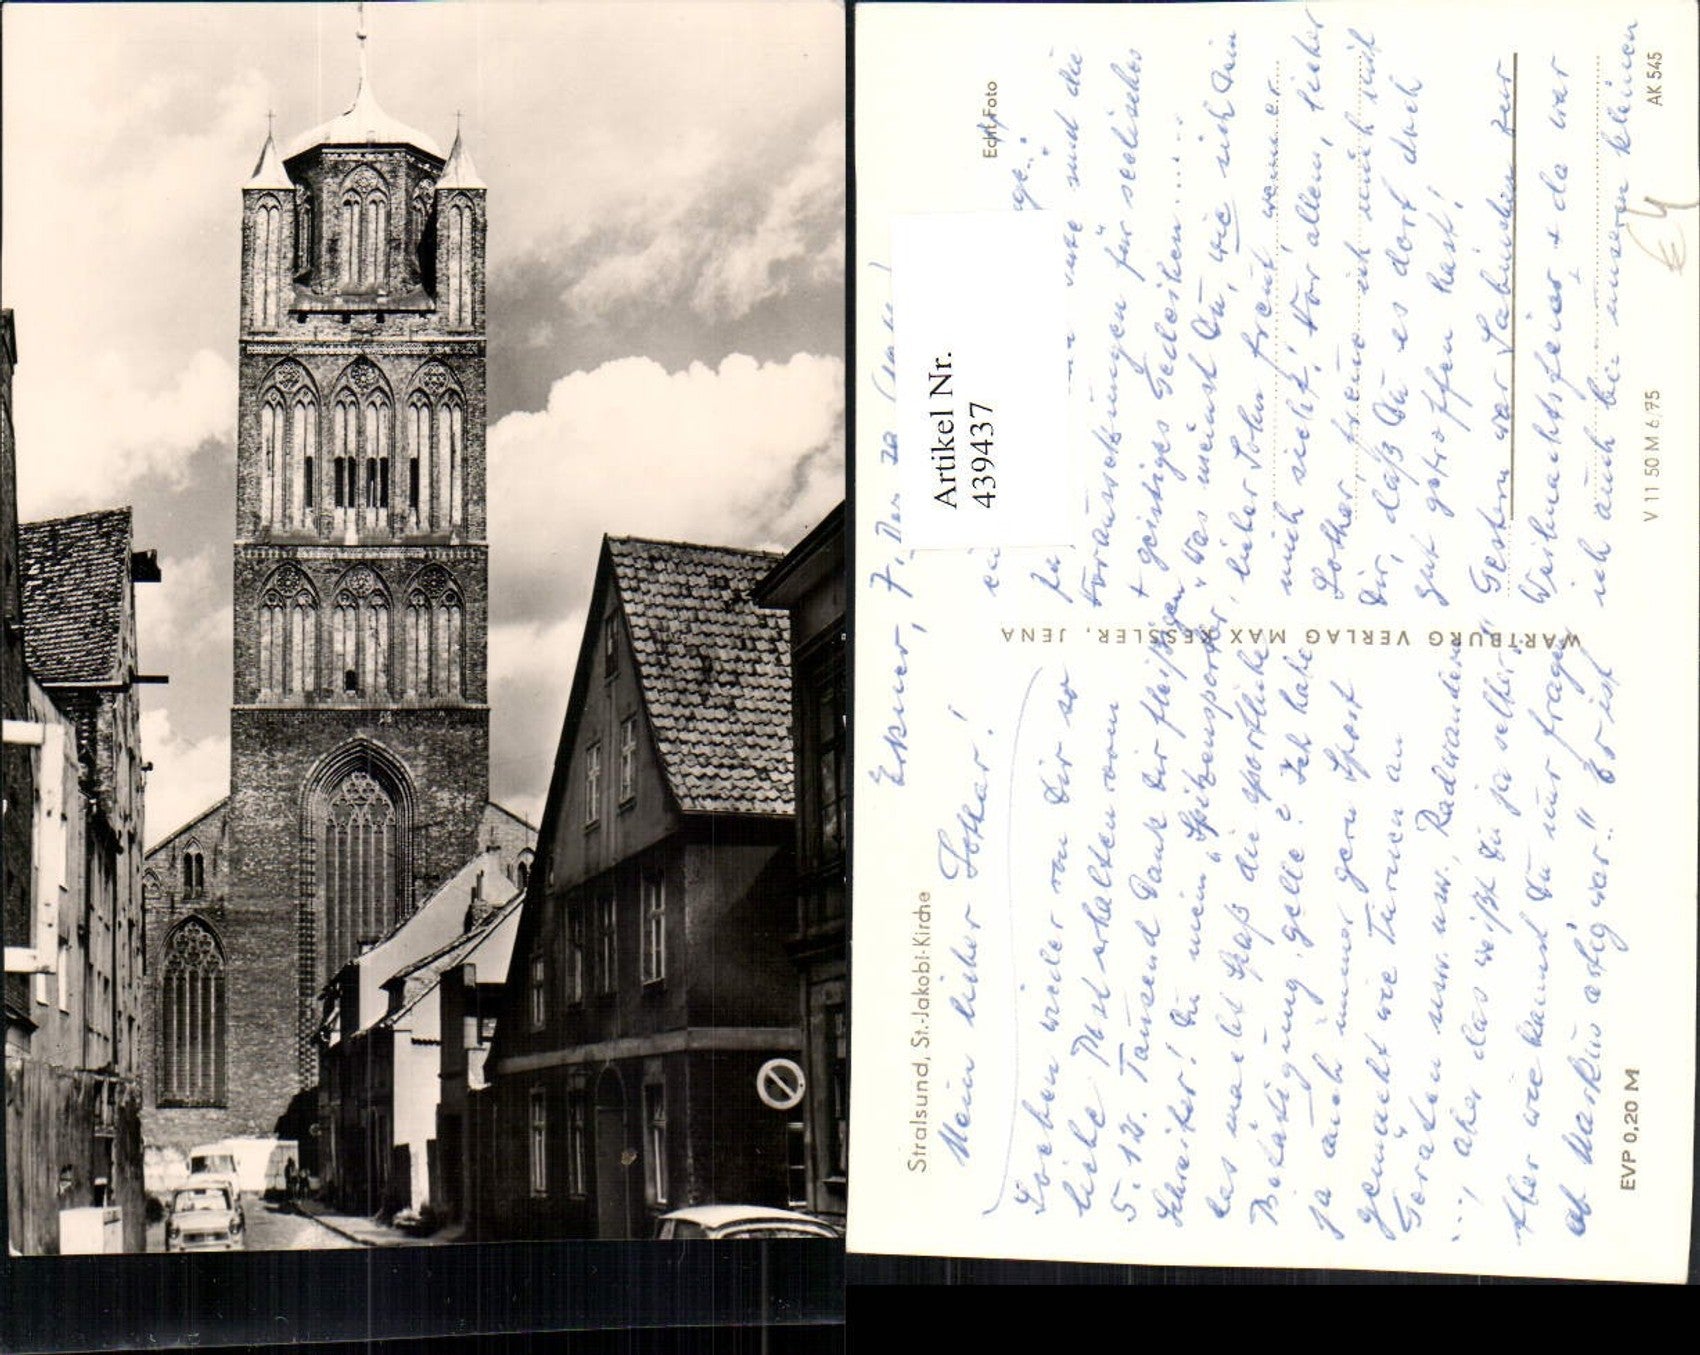 Stralsund, St.-Jakobi-Kirche
Echt Foto
WARTBURG VERLAG MAX KESSLER, JENA
EVP 0,20 M
V 11 50 M 6/75
AK 545
Artikel Nr.
439437
Erkner, 7. Dez.
Mein lieber Lothar!
Soeben wieder von Dir so
liebe Post erhalten vom
5. 12. Tausend Dank Dir fleißigen
Schreiber! Du mein "Spitzensportler",
das macht Spaß die sportliche
Betätigung, gelle? Ich habe
ja auch immer gern Sport
gemacht wie Turnen an
Geräten usw. usw. Radwandern
..., aber das weißt Du ja selber."
Aber wie kannst Du nur fragen
ob Markus artig war.." Er ist
vate und die
Voraussetzungen für seelisches
+ geistiges Gedeihen.....
Was meinst Du, wie sich Dein
lieber Sohn freut, wenn er
mich sieht! Vor allem, lieber
Lothar, freue ich mich mit
Dir, daß Du es dort doch
gut getroffen hast!
Gestern war Sabinchen zur
Weihnachtsfeier + da war
ich auch bei unserem kleinen